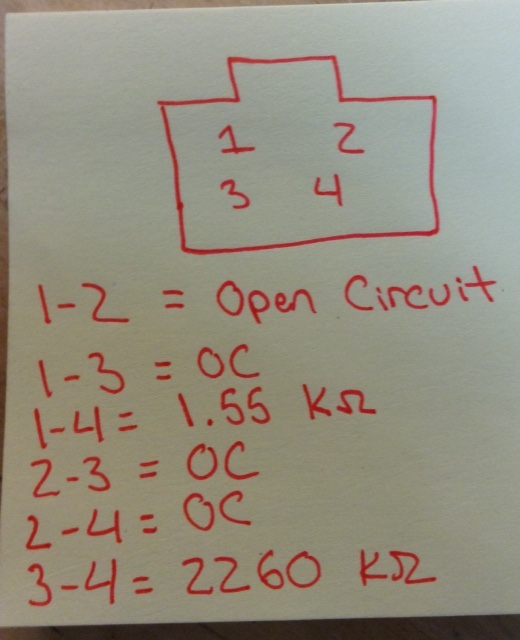 1 2
3 4
1-2 = Open Circuit
1-3 = OC
1-4 = 1.55 KΩ
2-3 = OC
2-4 = OC
3-4 = 2260 KΩ